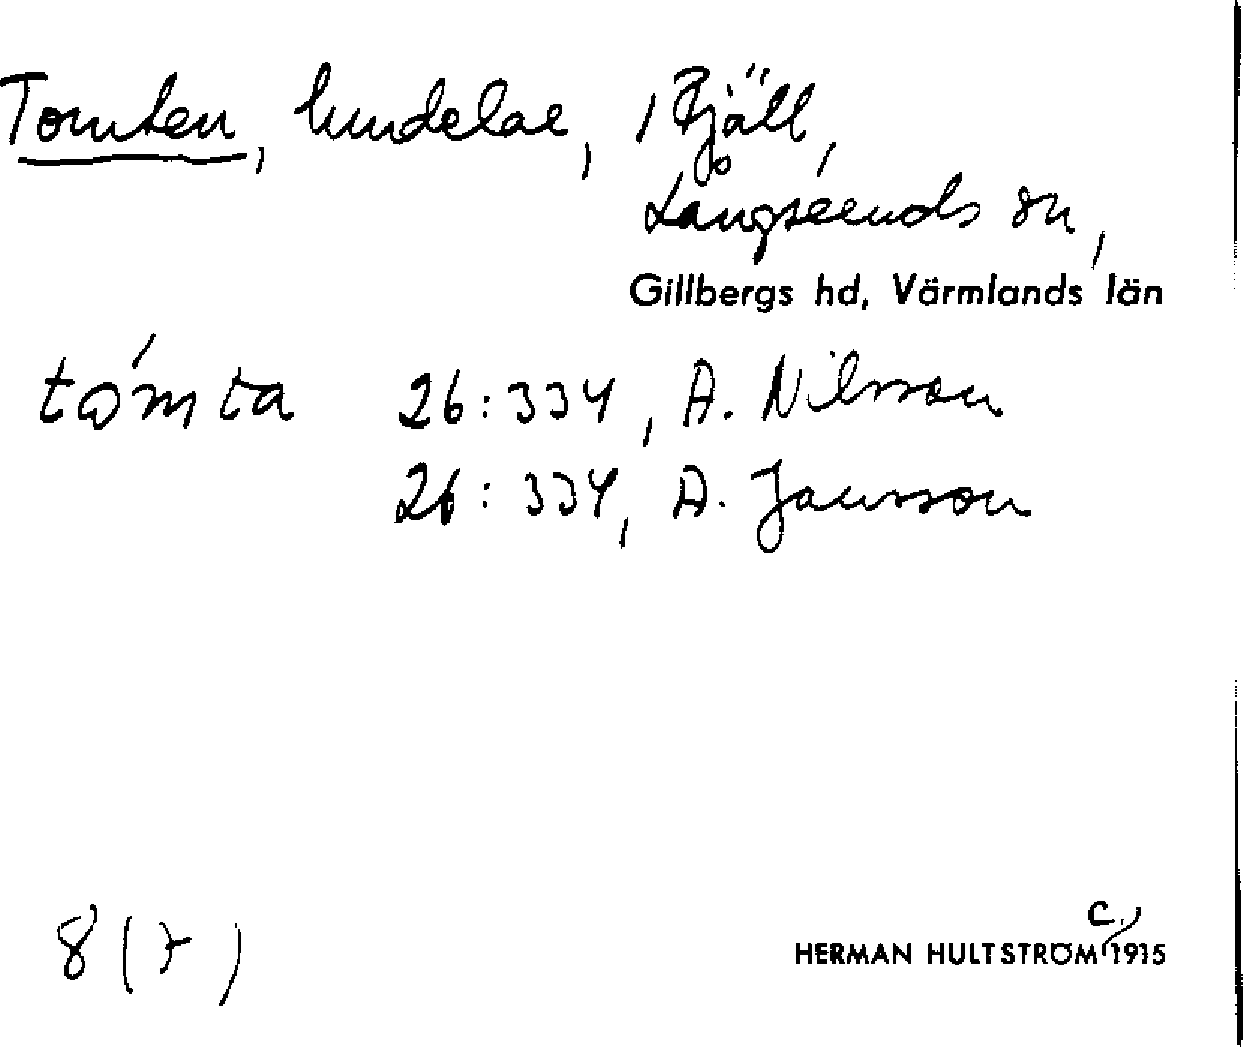 Tomten, hemdelar, i Fjäll,
Långseruds sn,
Gillbergs hd, Värmlands län
tómta 26:334, A. Nilsson
26:334, A. Jansson
c.
HERMAN HULTSTRÖM 1915
8 (7)